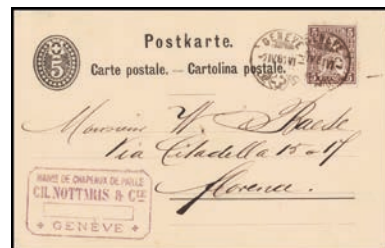 Postkarte.
Carte postale. — Cartolina postale.
5
GENÈVE
Monsieur W.
Via Citadella 15 - 17
Florence.
MANRE DE CHAPEAUX DE PAILLE
CH. NOTTARIS & CIE
GENÈVE